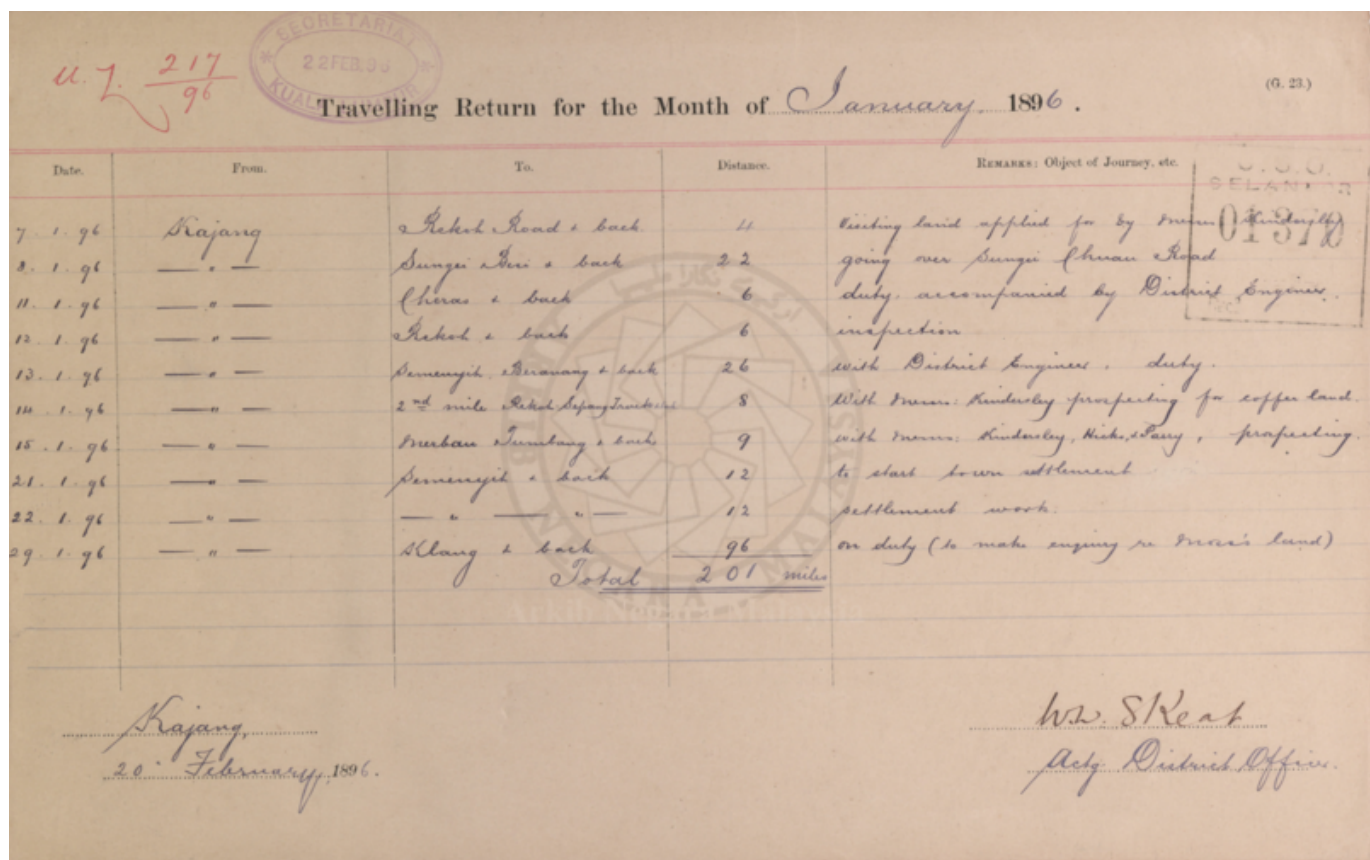 U.L. 217/96
SECRETARIAT
22 FEB. 96
KUALA
(G. 23.)
Travelling Return for the Month of January 1896.
Date. From. To. Distance. REMARKS: Object of Journey, etc.
SELANGOR
7. 1. 96 Kajang Rekoh Road & back 4 Visiting land applied for by Messrs Kindersley
8. 1. 96 — " — Sungei Besi & back 22 going over Sungei Chuau Road
11. 1. 96 — " — Cheras & back 6 duty. accompanied by District Engineer.
12. 1. 96 — " — Rekoh & back 6 inspection
13. 1. 96 — " — Semenyih, Beranang & back 26 with District Engineer, duty.
14. 1. 96 — " — 2nd mile Rekoh Sepang Trace & back 8 With Messrs: Kindersley prospecting for coffee land.
15. 1. 96 — " — Merbau Tumbang & back 9 with Messrs: Kindersley, Hicks, & Parry, prospecting.
21. 1. 96 — " — Semenyih & back 12 to start town settlement
22. 1. 96 — " — — " — " — 12 settlement work.
29. 1. 96 — " — Klang & back 96 on duty (to make enquiry re land)
Total 201 miles
Arkib Negara Malaysia
Kajang,
20 February, 1896.
W.W. Skeat
Actg. District Officer.